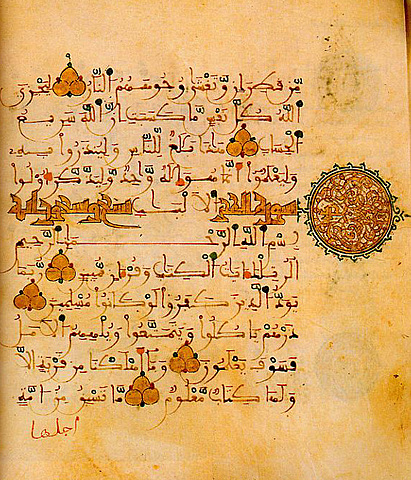 مِّن قَطِرَانٍ وَتَغْشَى وُجُوهَهُمُ النَّارُ لِيَجْزِيَ
اللَّهُ كُلَّ نَفْسٍ مَّا كَسَبَتْ إِنَّ اللَّهَ سَرِيعُ
الْحِسَابِ هَذَا بَلَغٌ لِّلنَّاسِ وَلِيُنذَرُوا بِهِ
وَلِيَعْلَمُوا أَنَّمَا هُوَ إِلَهٌ وَحِدٌ وَلِيَذَّكَّرَ أُولُوا
سورة الحجر الْأَلْبَبِ
بِسْمِ اللَّهِ الرَّحْمَنِ الرَّحِيمِ
الر تِلْكَ ءَايَتُ الْكِتَبِ وَقُرْءَانٍ مُّبِينٍ رُّبَمَا
يَوَدُّ الَّذِينَ كَفَرُوا لَوْ كَانُوا مُسْلِمِينَ
ذَرْهُمْ يَأْكُلُوا وَيَتَمَتَّعُوا وَيُلْهِهِمُ الْأَمَلُ
فَسَوْفَ يَعْلَمُونَ وَمَا أَهْلَكْنَا مِن قَرْيَةٍ إِلَّا
وَلَهَا كِتَابٌ مَّعْلُومٌ مَّا تَسْبِقُ مِنْ أُمَّةٍ
أجلها